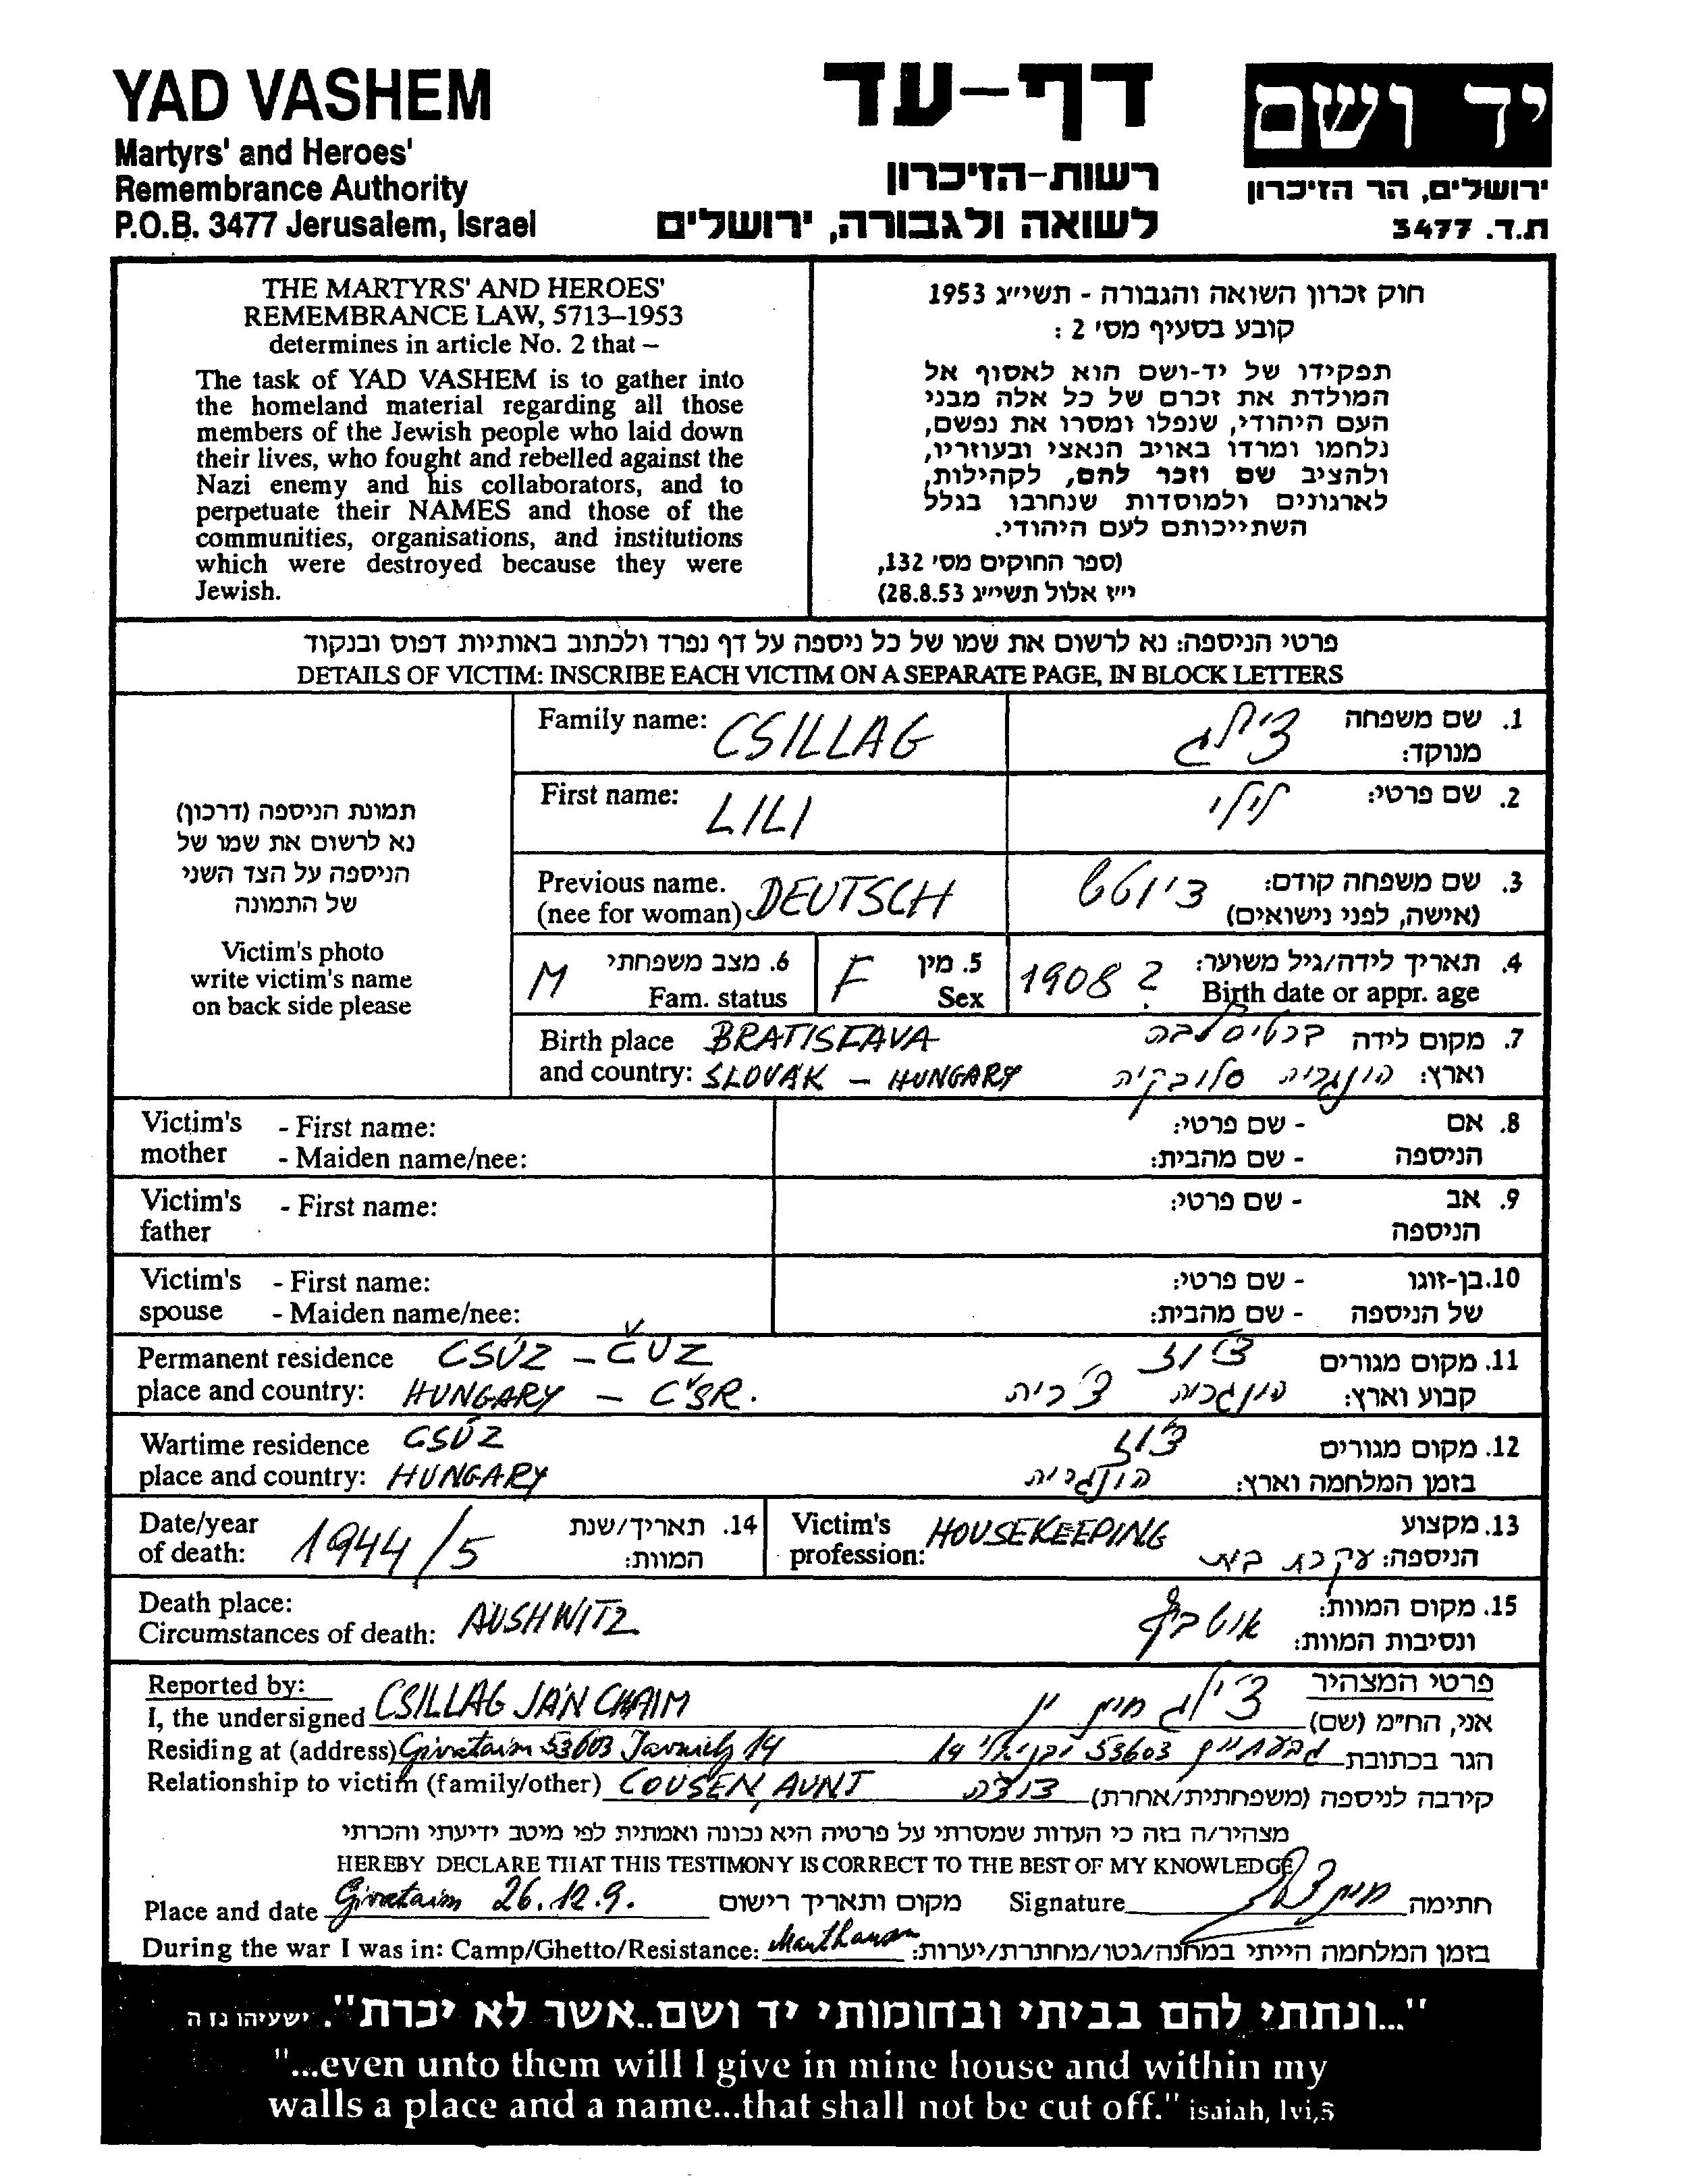 YAD VASHEM
Martyrs' and Heroes'
Remembrance Authority
P.O.B. 3477 Jerusalem, Israel
דף-עד
רשות-הזיכרון
לשואה ולגבורה, ירושלים
יד ושם
ירושלים, הר הזיכרון
ת.ד. 3477
THE MARTYRS' AND HEROES'
REMEMBRANCE LAW, 5713–1953
determines in article No. 2 that –
The task of YAD VASHEM is to gather into
the homeland material regarding all those
members of the Jewish people who laid down
their lives, who fought and rebelled against the
Nazi enemy and his collaborators, and to
perpetuate their NAMES and those of the
communities, organisations, and institutions
which were destroyed because they were
Jewish.
חוק זכרון השואה והגבורה - תשי״ג 1953
קובע בסעיף מס׳ 2 :
תפקידו של יד-ושם הוא לאסוף אל
המולדת את זכרם של כל אלה מבני
העם היהודי, שנפלו ומסרו את נפשם,
נלחמו ומרדו באויב הנאצי ובעוזריו,
ולהציב שם וזכר להם, לקהילות,
לארגונים ולמוסדות שנחרבו בגלל
השתייכותם לעם היהודי.
(ספר החוקים מס׳ 132,
י״ז אלול תשי״ג 28.8.53)
פרטי הניספה: נא לרשום את שמו של כל ניספה על דף נפרד ולכתוב באותיות דפוס ובנקוד
DETAILS OF VICTIM: INSCRIBE EACH VICTIM ON A SEPARATE PAGE, IN BLOCK LETTERS
תמונת הניספה (דרכון)
נא לרשום את שמו של
הניספה על הצד השני
של התמונה
Victim's photo
write victim's name
on back side please
Family name: CSILLAG צילג 1. שם משפחה
מנוקד:
First name: LILI לילי 2. שם פרטי:
Previous name. DEUTSCH 3. שם משפחה קודם:
(nee for woman) (אישה, לפני נישואים)
M 6. מצב משפחתי F 5. מין 1908 ? 4. תאריך לידה/גיל משוער:
Fam. status Sex Birth date or appr. age
Birth place BRATISLAVA ברטיסלבה 7. מקום לידה
and country: SLOVAK – HUNGARY הונגריה סלובקיה וארץ:
Victim's - First name: - שם פרטי: 8. אם
mother - Maiden name/nee: - שם מהבית: הניספה
Victim's - First name: - שם פרטי: 9. אב
father הניספה
Victim's - First name: - שם פרטי: 10. בן-זוגו
spouse - Maiden name/nee: - שם מהבית: של הניספה
Permanent residence CSÚZ – ČUZ צ'וז 11. מקום מגורים
place and country: HUNGARY – ČSR. הונגריה צ'כיה קבוע וארץ:
Wartime residence CSÚZ צ'וז 12. מקום מגורים
place and country: HUNGARY הונגריה בזמן המלחמה וארץ:
Date/year 1944/5 14. תאריך/שנת
of death: המוות:
Victim's HOUSEKEEPING 13. מקצוע
profession: עקרת בית הניספה:
Death place: AUSHWITZ אושביץ 15. מקום המוות:
Circumstances of death: ונסיבות המוות:
Reported by: פרטי המצהיר
I, the undersigned CSILLAG JÁN CHAIM צילג חיים אני, החי״מ (שם)
Residing at (address) Givataim 53603 Javnieli 14 גבעתיים 53603 יבניאלי 14 הגר בכתובת
Relationship to victim (family/other) COUSEN, AUNT דודה קירבה לניספה (משפחתית/אחרת)
מצהיר/ה בזה כי העדות שמסרתי על פרטיה היא נכונה ואמתית לפי מיטב ידיעתי והכרתי
HEREBY DECLARE THAT THIS TESTIMONY IS CORRECT TO THE BEST OF MY KNOWLEDGE
Place and date Givataim 26.12.9. מקום ותאריך רישום Signature חתימה
During the war I was in: Camp/Ghetto/Resistance: בזמן המלחמה הייתי במחנה/גטו/מחתרת/יערות:
"...ונתתי להם בביתי ובחומותי יד ושם..אשר לא יכרת". ישעיהו נז ה
"...even unto them will I give in mine house and within my
walls a place and a name...that shall not be cut off." isaiah, lvi,5